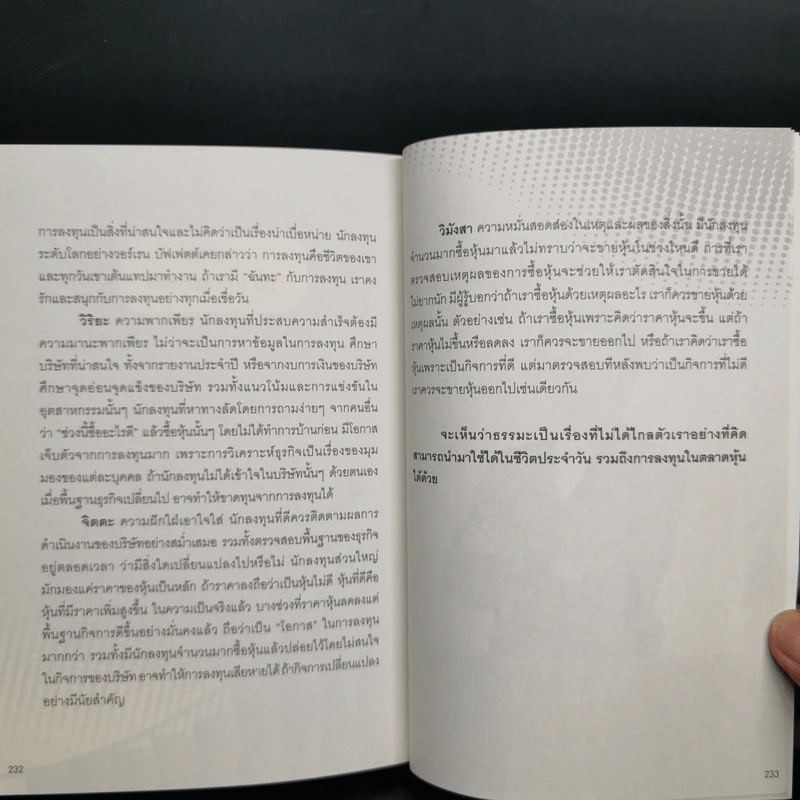 การลงทุนเป็นสิ่งที่น่าสนใจและไม่คิดว่าเป็นเรื่องน่าเบื่อหน่าย นักลงทุน
ระดับโลกอย่างวอร์เรน บัฟเฟตต์เคยกล่าวว่า การลงทุนคือชีวิตของเขา
และทุกวันเขาเต้นแทปมาทำงาน ถ้าเรามี "ฉันทะ" กับการลงทุน เราคง
รักและสนุกกับการลงทุนอย่างทุกเมื่อเชื่อวัน
วิริยะ ความพากเพียร นักลงทุนที่ประสบความสำเร็จต้องมี
ความมานะพากเพียร ไม่ว่าจะเป็นการหาข้อมูลในการลงทุน ศึกษา
บริษัทที่น่าสนใจ ทั้งจากรายงานประจำปี หรือจากงบการเงินของบริษัท
ศึกษาจุดอ่อนจุดแข็งของบริษัท รวมทั้งแนวโน้มและการแข่งขันใน
อุตสาหกรรมนั้นๆ นักลงทุนที่หาทางลัดโดยการถามง่ายๆ จากคนอื่น
ว่า "ช่วงนี้ซื้ออะไรดี" แล้วซื้อหุ้นนั้นๆ โดยไม่ได้ทำการบ้านก่อน มีโอกาส
เจ็บตัวจากการลงทุนมาก เพราะการวิเคราะห์ธุรกิจเป็นเรื่องของมุม
มองของแต่ละบุคคล ถ้านักลงทุนไม่ได้เข้าใจในบริษัทนั้นๆ ด้วยตนเอง
เมื่อพื้นฐานธุรกิจเปลี่ยนไป อาจทำให้ขาดทุนจากการลงทุนได้
จิตตะ ความฝักใฝ่เอาใจใส่ นักลงทุนที่ดีควรติดตามผลการ
ดำเนินงานของบริษัทอย่างสม่ำเสมอ รวมทั้งตรวจสอบพื้นฐานของธุรกิจ
อยู่ตลอดเวลา ว่ามีสิ่งใดเปลี่ยนแปลงไปหรือไม่ นักลงทุนส่วนใหญ่
มักมองแค่ราคาของหุ้นเป็นหลัก ถ้าราคาลงถือว่าเป็นหุ้นไม่ดี หุ้นที่ดีคือ
หุ้นที่มีราคาเพิ่มสูงขึ้น ในความเป็นจริงแล้ว บางช่วงที่ราคาหุ้นลดลงแต่
พื้นฐานกิจการดีขึ้นอย่างมั่นคงแล้ว ถือว่าเป็น "โอกาส" ในการลงทุน
มากกว่า รวมทั้งมีนักลงทุนจำนวนมากซื้อหุ้นแล้วปล่อยไว้โดยไม่สนใจ
ในกิจการของบริษัท อาจทำให้การลงทุนเสียหายได้ ถ้ากิจการเปลี่ยนแปลง
อย่างมีนัยสำคัญ
232
วิมังสา ความหมั่นสอดส่องในเหตุและผลของสิ่งนั้น มีนักลงทุน
จำนวนมากซื้อหุ้นมาแล้วไม่ทราบว่าจะขายหุ้นในช่วงไหนดี การที่เรา
ตรวจสอบเหตุผลของการซื้อหุ้นจะช่วยให้เราตัดสินใจในการขายได้
ไม่ยากนัก มีผู้รู้บอกว่าถ้าเราซื้อหุ้นด้วยเหตุผลอะไร เราก็ควรขายหุ้นด้วย
เหตุผลนั้น ตัวอย่างเช่น ถ้าเราซื้อหุ้นเพราะคิดว่าราคาหุ้นจะขึ้น แต่ถ้า
ราคาหุ้นไม่ขึ้นหรือลดลง เราก็ควรจะขายออกไป หรือถ้าเราคิดว่าเราซื้อ
หุ้นเพราะเป็นกิจการที่ดี แต่มาตรวจสอบทีหลังพบว่าเป็นกิจการที่ไม่ดี
เราควรจะขายหุ้นออกไปเช่นเดียวกัน
จะเห็นว่าธรรมะเป็นเรื่องที่ไม่ได้ไกลตัวเราอย่างที่คิด
สามารถนำมาใช้ได้ในชีวิตประจำวัน รวมถึงการลงทุนในตลาดหุ้น
ได้ด้วย
233